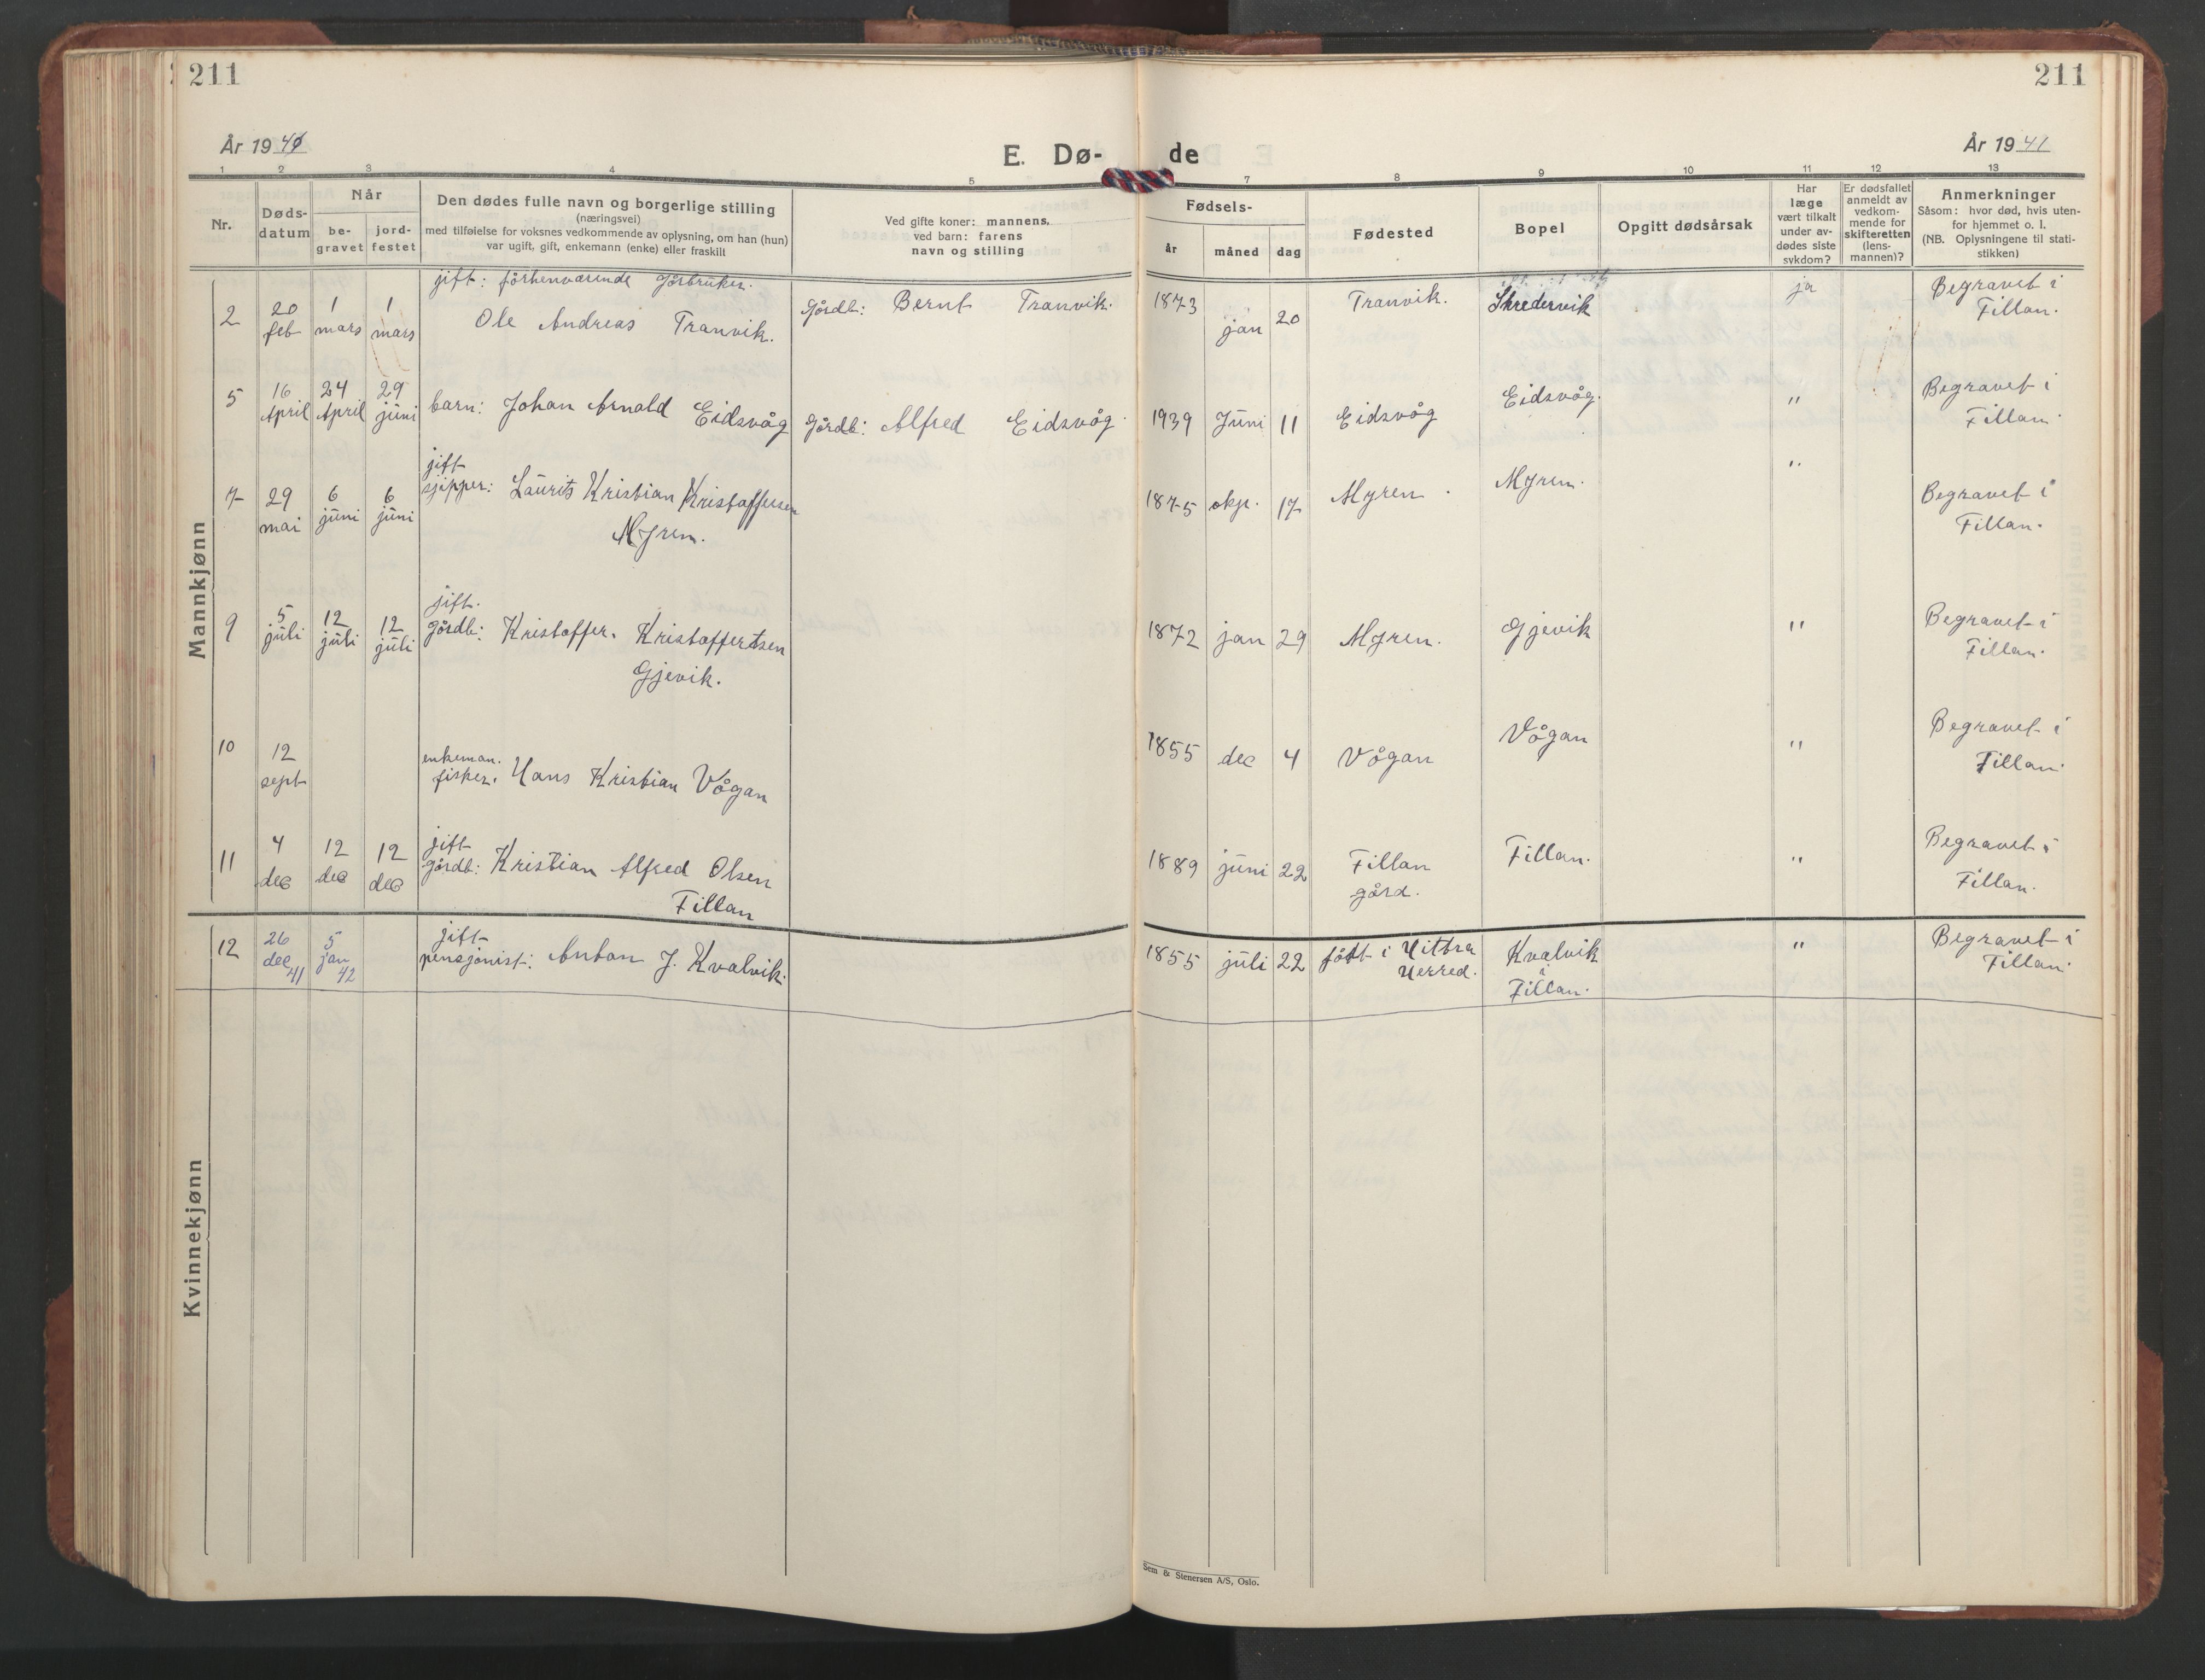 211
211
År 1941
E. Dø-
de
År 1941
1 2 3 4 5 7 8 9 10 11 12 13
Nr.
Døds-
datum
Når
be-
gravet
jord-
festet
Den dødes fulle navn og borgerlige stilling
(næringsvei)
med tilføielse for voksnes vedkommende av oplysning, om han (hun)
var ugift, gift, enkemann (enke) eller fraskilt
Ved gifte koner: mannens,
ved barn: farens
navn og stilling
Fødsels-
år
måned
dag
Fødested
Bopel
Opgitt dødsårsak
Har
læge
vært tilkalt
under av-
dødes siste
sykdom?
Er dødsfallet
anmeldt av
vedkom-
mende for
skifteretten
(lens-
mannen)?
Anmerkninger
Såsom: hvor død, hvis uten-
for hjemmet o. l.
(NB. Oplysningene til stati-
stikken)
Mannkjønn
2
20 feb
1 mars
1 mars
gift: förhenværende gårbruker.
Ole Andreas Tranvik.
Gårdb: Bernt Tranvik.
1873 jan 20
Tranvik.
Skredervik
ja
Begravet i
Fillan.
5
16 April
24 April
29 juni
barn: Johan Arnold Eidsvåg
Gårdb: Alfred Eidsvåg.
1939 Juni 11
Eidsvåg
Eidsvåg.
"
Begravet i
Fillan.
7
29 mai
6 juni
6 juni
gift
sjipper: Laurits Kristian Kristoffersen
Myren.
1875 okp. 17
Myren.
Myren.
"
Begravet i
Fillan.
9
5 juli
12 juli
12 juli
gift.
gårdb: Kristoffer. Kristoffertsen
Gjevik.
1872 jan 29
Myren.
Gjevik
"
Begravet i
Fillan.
10
12 sept
enkeman.
fisker. Hans Kristian Vågan
1855 dec 4
Vågan
Vågan
"
Begravet i
Fillan.
11
4 dec
12 dec
12 dec
gift
gårdb: Kristian Alfred Olsen
Fillan
1889 juni 22
Fillan
gård.
Fillan.
"
Begravet i
Fillan.
12
26 dec 41
5 jan 42
gift
pensjonist: Anton J. Kvalvik.
1855 juli 22
født i Hittra
Herred.
Kvalvik
i
Fillan.
"
Begravet i
Fillan.
Kvinnekjønn
Sem & Stenersen A/S, Oslo.